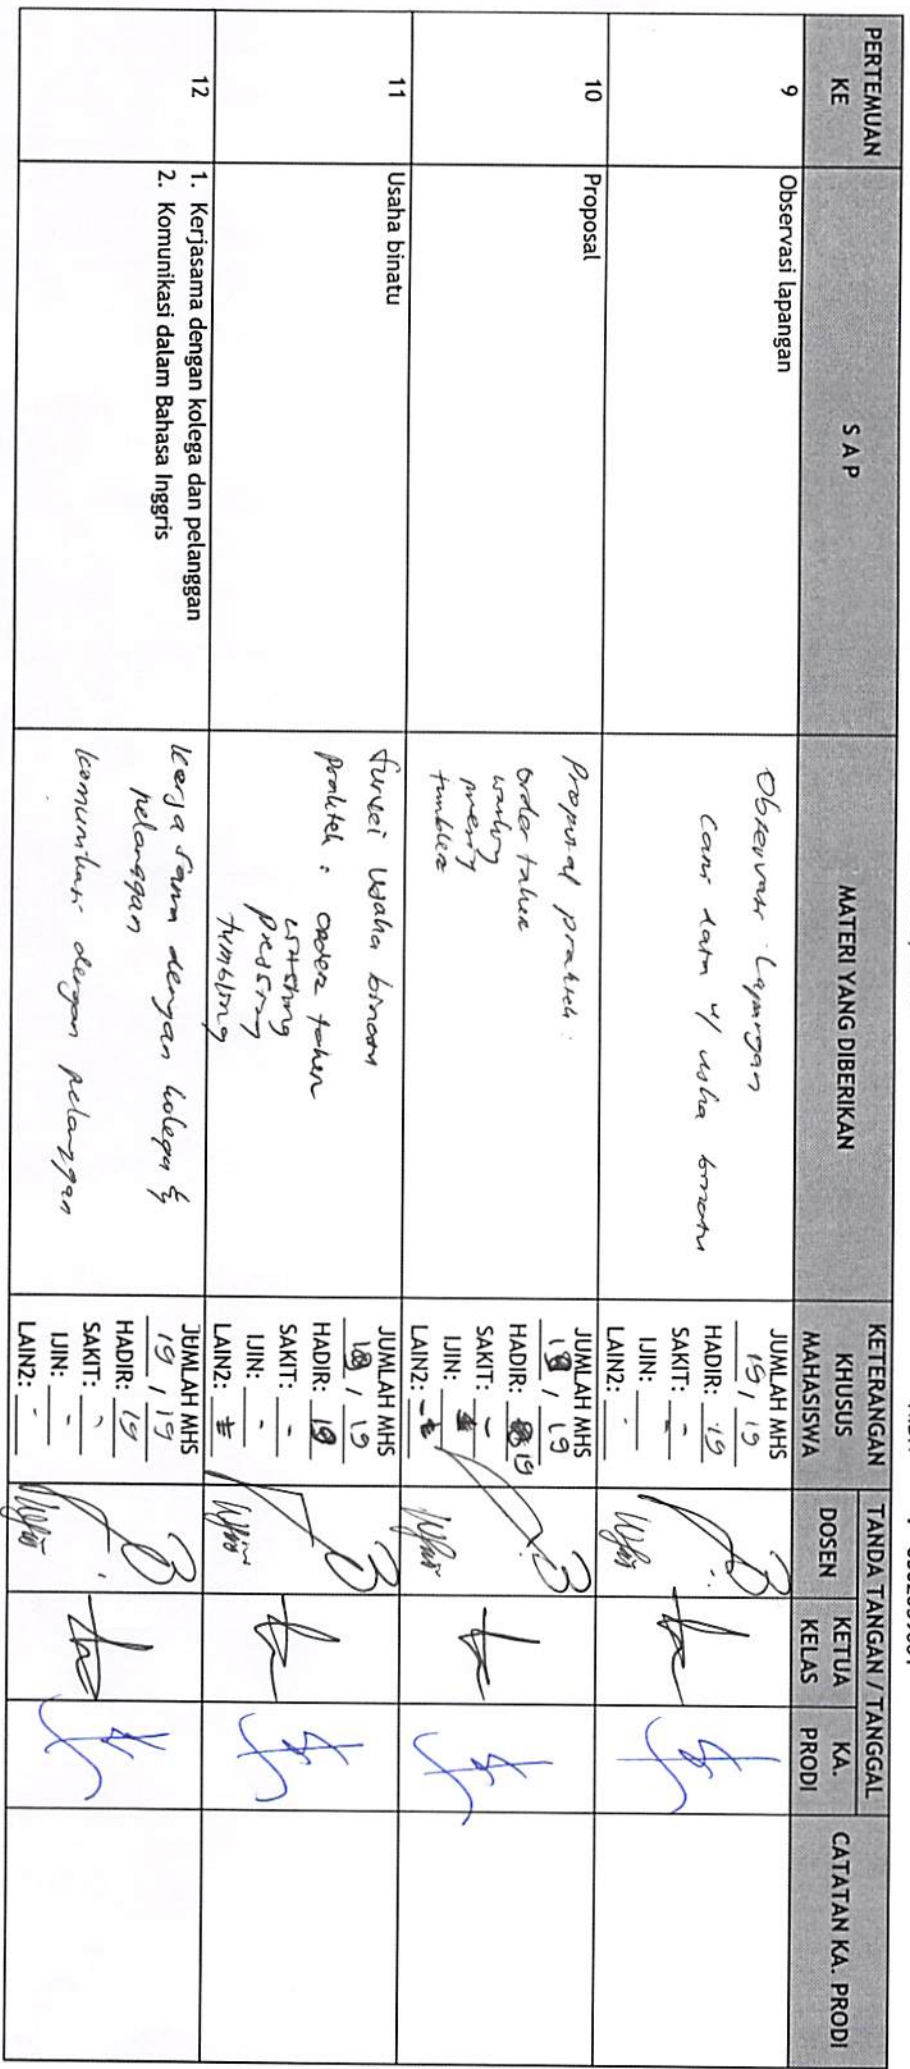 PERTEMUAN KE
S A P
MATERI YANG DIBERIKAN
KETERANGAN KHUSUS MAHASISWA
TANDA TANGAN / TANGGAL
DOSEN
KETUA KELAS
KA. PRODI
CATATAN KA. PRODI
9
Observasi lapangan
Observasi Lapangan
Cari data u/ usha binatu
JUMLAH MHS
19 / 19
HADIR: 19
SAKIT: -
IJIN:
LAIN2: -
10
Proposal
Proposal praktek :
order taker
washing
pressing
tumbler
JUMLAH MHS
19 / 19
HADIR: 19
SAKIT: -
IJIN:
LAIN2: -
11
Usaha binatu
Survei usaha binatu
praktek : order taker
washing
pressing
tumbling
JUMLAH MHS
19 / 19
HADIR: 19
SAKIT: -
IJIN: -
LAIN2:
12
1. Kerjasama dengan kolega dan pelanggan
2. Komunikasi dalam Bahasa Inggris
kerja sama dengan kolega &
pelanggan
komunikasi dengan pelanggan
JUMLAH MHS
19 / 19
HADIR: 19
SAKIT: -
IJIN: -
LAIN2: -